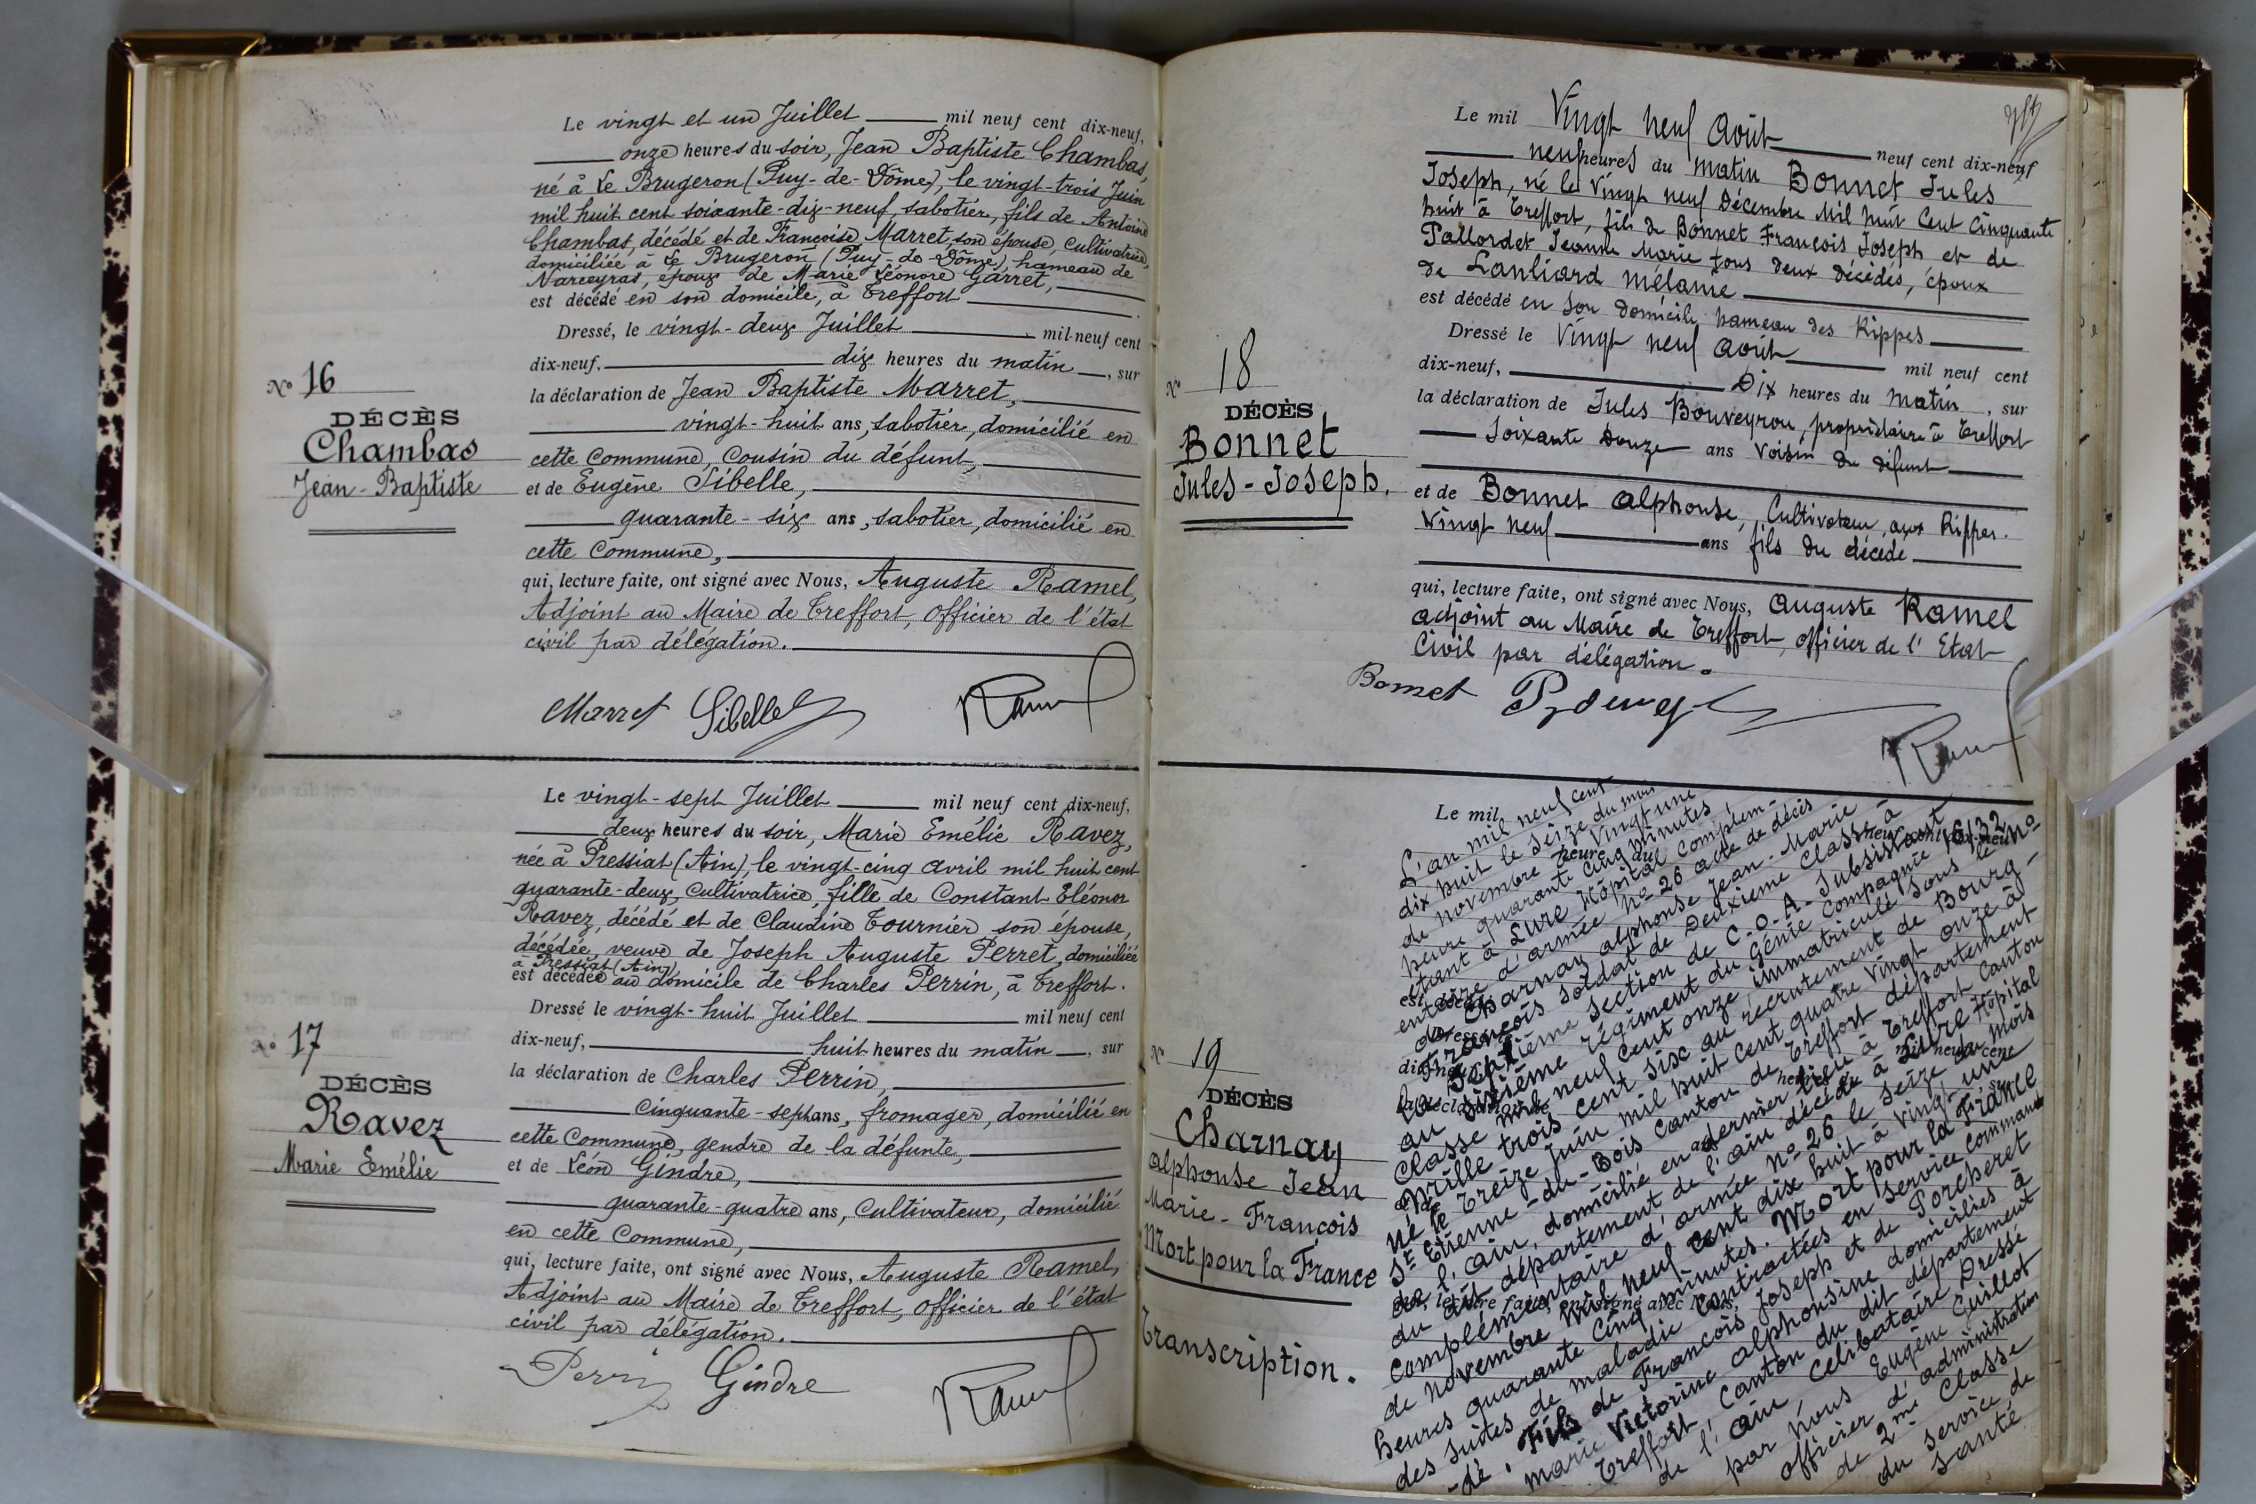 Le vingt et un Juillet mil neuf cent dix-neuf,
onze heures du soir, Jean Baptiste Chambas,
né à Le Brugeron (Puy-de-Dôme), le vingt-trois Juin
mil huit cent soixante-dix-neuf, sabotier, fils de Antoine
Chambas, décédé et de Françoise Marret, son épouse, cultivatrice,
domiciliée à Le Brugeron (Puy-de-Dôme) hameau de
Narceyras, époux de Marie Léonore Garret,
est décédé en son domicile, à Treffort.
Dressé, le vingt-deux Juillet mil neuf cent
dix-neuf, dix heures du matin, sur
la déclaration de Jean Baptiste Marret,
vingt-huit ans, sabotier, domicilié en
cette Commune, cousin du défunt,
et de Eugène Sibelle,
quarante-six ans, sabotier, domicilié en
cette Commune,
qui, lecture faite, ont signé avec Nous, Auguste Ramel,
Adjoint au Maire de Treffort, Officier de l'état
civil par délégation.
Marret Sibelle Ramel
No 16
DÉCÈS
Chambas
Jean-Baptiste
Le vingt-sept Juillet mil neuf cent dix-neuf,
deux heures du soir, Marie Emélie Ravez,
née à Pressiat (Ain), le vingt-cinq Avril mil huit cent
quarante-deux, cultivatrice, fille de Constant Eléonor
Ravez, décédé et de Claudine Tournier son épouse,
décédée, veuve de Joseph Auguste Perret, domiciliée
à Pressiat (Ain)
est décédée au domicile de Charles Perrin, à Treffort.
Dressé le vingt-huit Juillet mil neuf cent
dix-neuf, huit heures du matin, sur
la déclaration de Charles Perrin,
cinquante-sept ans, fromager, domicilié en
cette Commune, gendre de la défunte,
et de Léon Gindre,
quarante-quatre ans, cultivateur, domicilié
en cette Commune,
qui, lecture faite, ont signé avec Nous, Auguste Ramel,
Adjoint au Maire de Treffort, Officier de l'état
civil par délégation.
Perrin Gindre Ramel
No 17
DÉCÈS
Ravez
Marie Emélie
Le mil Vingt neuf Août neuf cent dix-neuf
neuf heures du matin Bonnet Jules
Joseph, né le Vingt neuf Décembre Mil huit Cent Cinquante
huit à Treffort, fils de Bonnet François Joseph et de
Pallordet Jeanne Marie tous deux décédés, époux
de Lanliard Mélanie
est décédé en son domicile hameau des Rippes
Dressé le Vingt neuf Août mil neuf cent
dix-neuf, Dix heures du matin, sur
la déclaration de Jules Bouveyron, propriétaire à Treffort
Soixante Douze ans Voisin du défunt
et de Bonnet Alphonse, Cultivateur, aux Rippes.
Vingt neuf ans fils du décédé
qui, lecture faite, ont signé avec Nous, Auguste Ramel
Adjoint au Maire de Treffort, officier de l'Etat
Civil par délégation.
Bonnet Ramel
No 18
DÉCÈS
Bonnet
Jules-Joseph.
Le mil
L'an mil neuf cent
dix huit le seize du mois
de novembre à Vingt une
heure quarante cinq minutes,
étant à Lure Hôpital Complém-
entaire d'armée No 26 acte de décès
de Charnay Alphonse Jean-Marie
François soldat de Deuxième classe à
la Septième section de C.O.A. Subsistant
au Sixième régiment du Génie Compagnie 16/32
Classe mil neuf cent onze, immatriculé sous le No
mille trois cent six au recrutement de Bourg-
né le Treize Juin mil huit cent quatre Vingt onze à
St Etienne-du-Bois Canton de Treffort département
de l'Ain, domicilié en dernier lieu à Treffort Canton
du dit département de l'Ain décédé à Lure Hôpital
Complémentaire d'armée No 26 le seize du mois
de Novembre Mil neuf cent dix huit à Vingt une
heures quarante cinq minutes. Mort pour la France
des suites de maladie contractées en service command
-dé. Fils de François Joseph et de Porcheret
Marie Victorine Alphonsine domiciliés à
Treffort, Canton du dit département
de l'Ain Célibataire Dressé
par nous Eugène Guillot
officier d'administration
de 2me Classe
du service de
santé
No 19
DÉCÈS
Charnay
Alphonse Jean
Marie-François
Mort pour la France
Transcription.